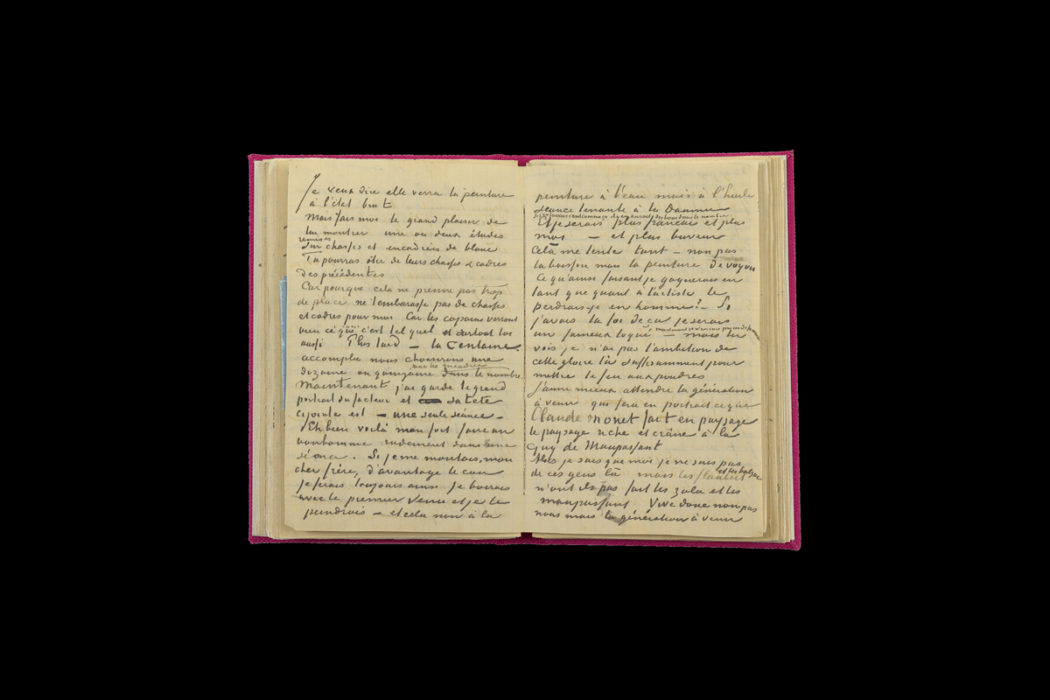 Je veux dire elle verra la peinture
à l'état brut
Mais fais moi le grand plaisir de
lui montrer une ou deux études
remises
sur chassis et encadrées de blanc
Tu pourras ôter de leurs chassis & cadres
des précédentes
Car pourque cela ne prenne pas trop
de place ne t'embarasse pas de chassis
et cadres pour moi Car les copains verront
bien ce que c'est tel quel et surtout toi
aussi Plus tard – la Centaine
accomplie nous choisirons une
dizaine ou quinzaine dans le nombre
Maintenant j'ai garde le grand
portrait du facteur et sa tete
cijointe est – une seule séance –
Eh bien voilà mon fort faire un
bonhomme rudement dans une
séance. Si je me montais, mon
cher frère, d'avantage le cou
je ferais toujours ainsi je boirais
avec le premier venu et je le
peindrais – et cela non à la
peinture à l'eau mais à l'huile
séance tenante à la Daumier
Et je serais plus franches et plus
moi – et plus buveur
Cela me tente tant – non pas
la boisson mais la peinture de voyou
Ce qu'ainsi faisant je gagnerais en
tant que quant à l'artiste le
perdrais-je en homme? – Si
j'avais la foi de ça je serais
un fameux toqué – mais tu
vois je n'ai pas l'ambition de
cette gloire là suffisamment pour
mettre le feu aux poudres
j'aime mieux attendre la génération
à venir qui fera en portrait ce que
Claude Monet fait en paysage
le paysage riche et crâne à la
Guy de Maupassant
Alors je sais que moi je ne suis pas
et les balzac
de ces gens là mais les flaubert
n'ont ils pas fait les zola et les
maupassant Vive donc non pas
nous mais la génération à venir